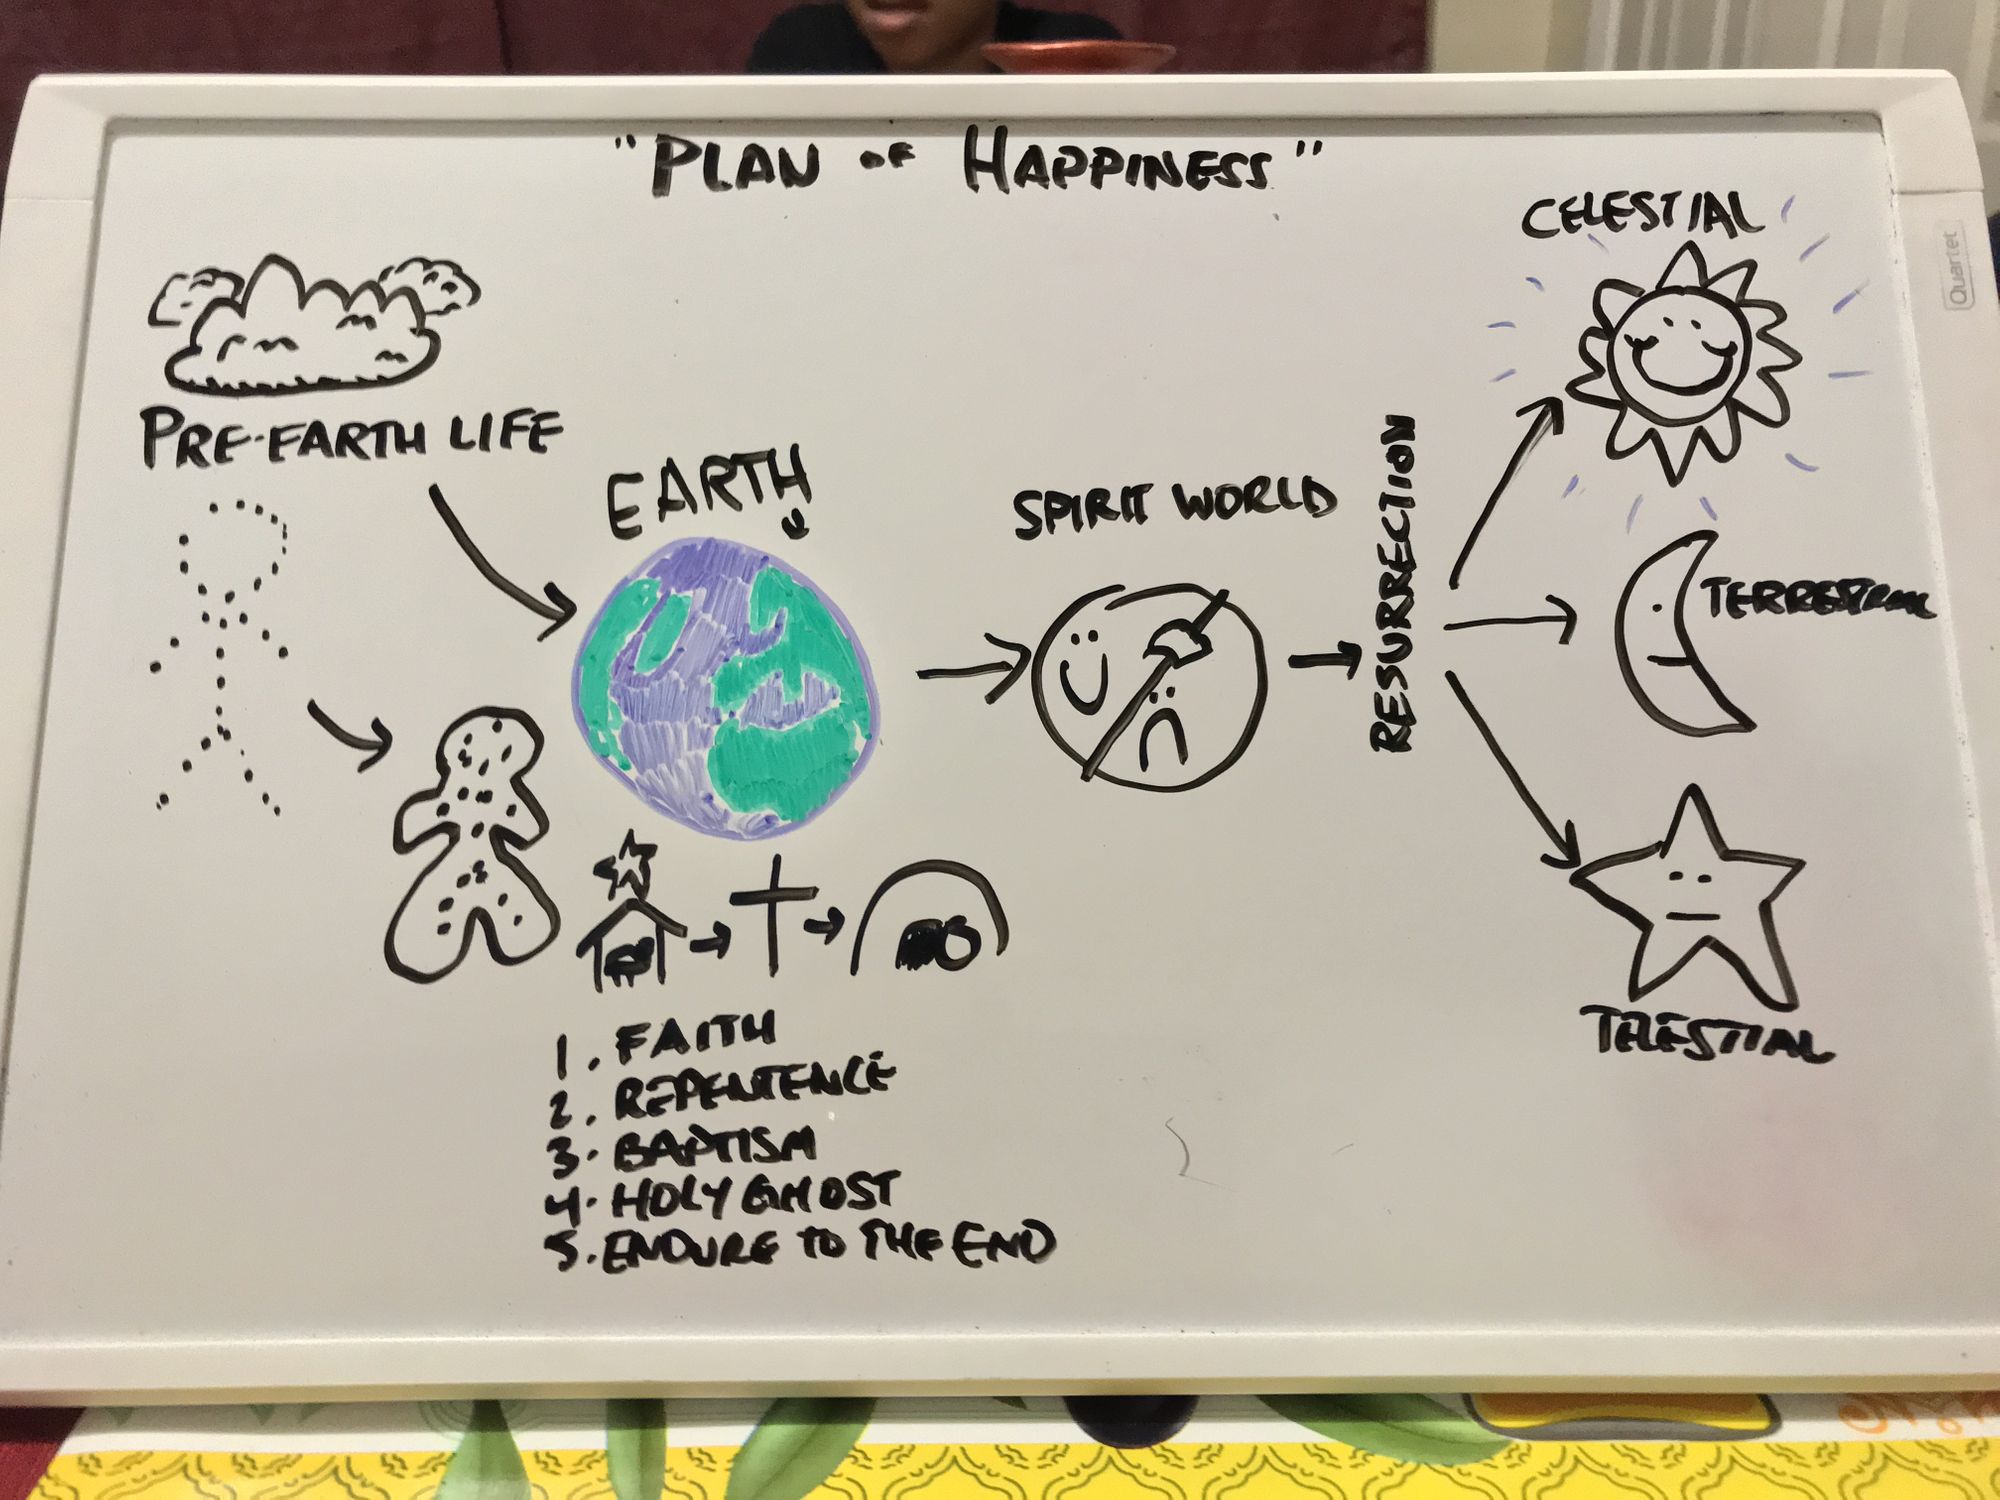 "PLAN OF HAPPINESS"
CELESTIAL
PRE-EARTH LIFE
EARTH
SPIRIT WORLD
RESURRECTION
TERRESTRIAL
TELESTIAL
1. FAITH
2. REPENTENCE
3. BAPTISM
4. HOLY GHOST
5. ENDURE TO THE END
Quartet